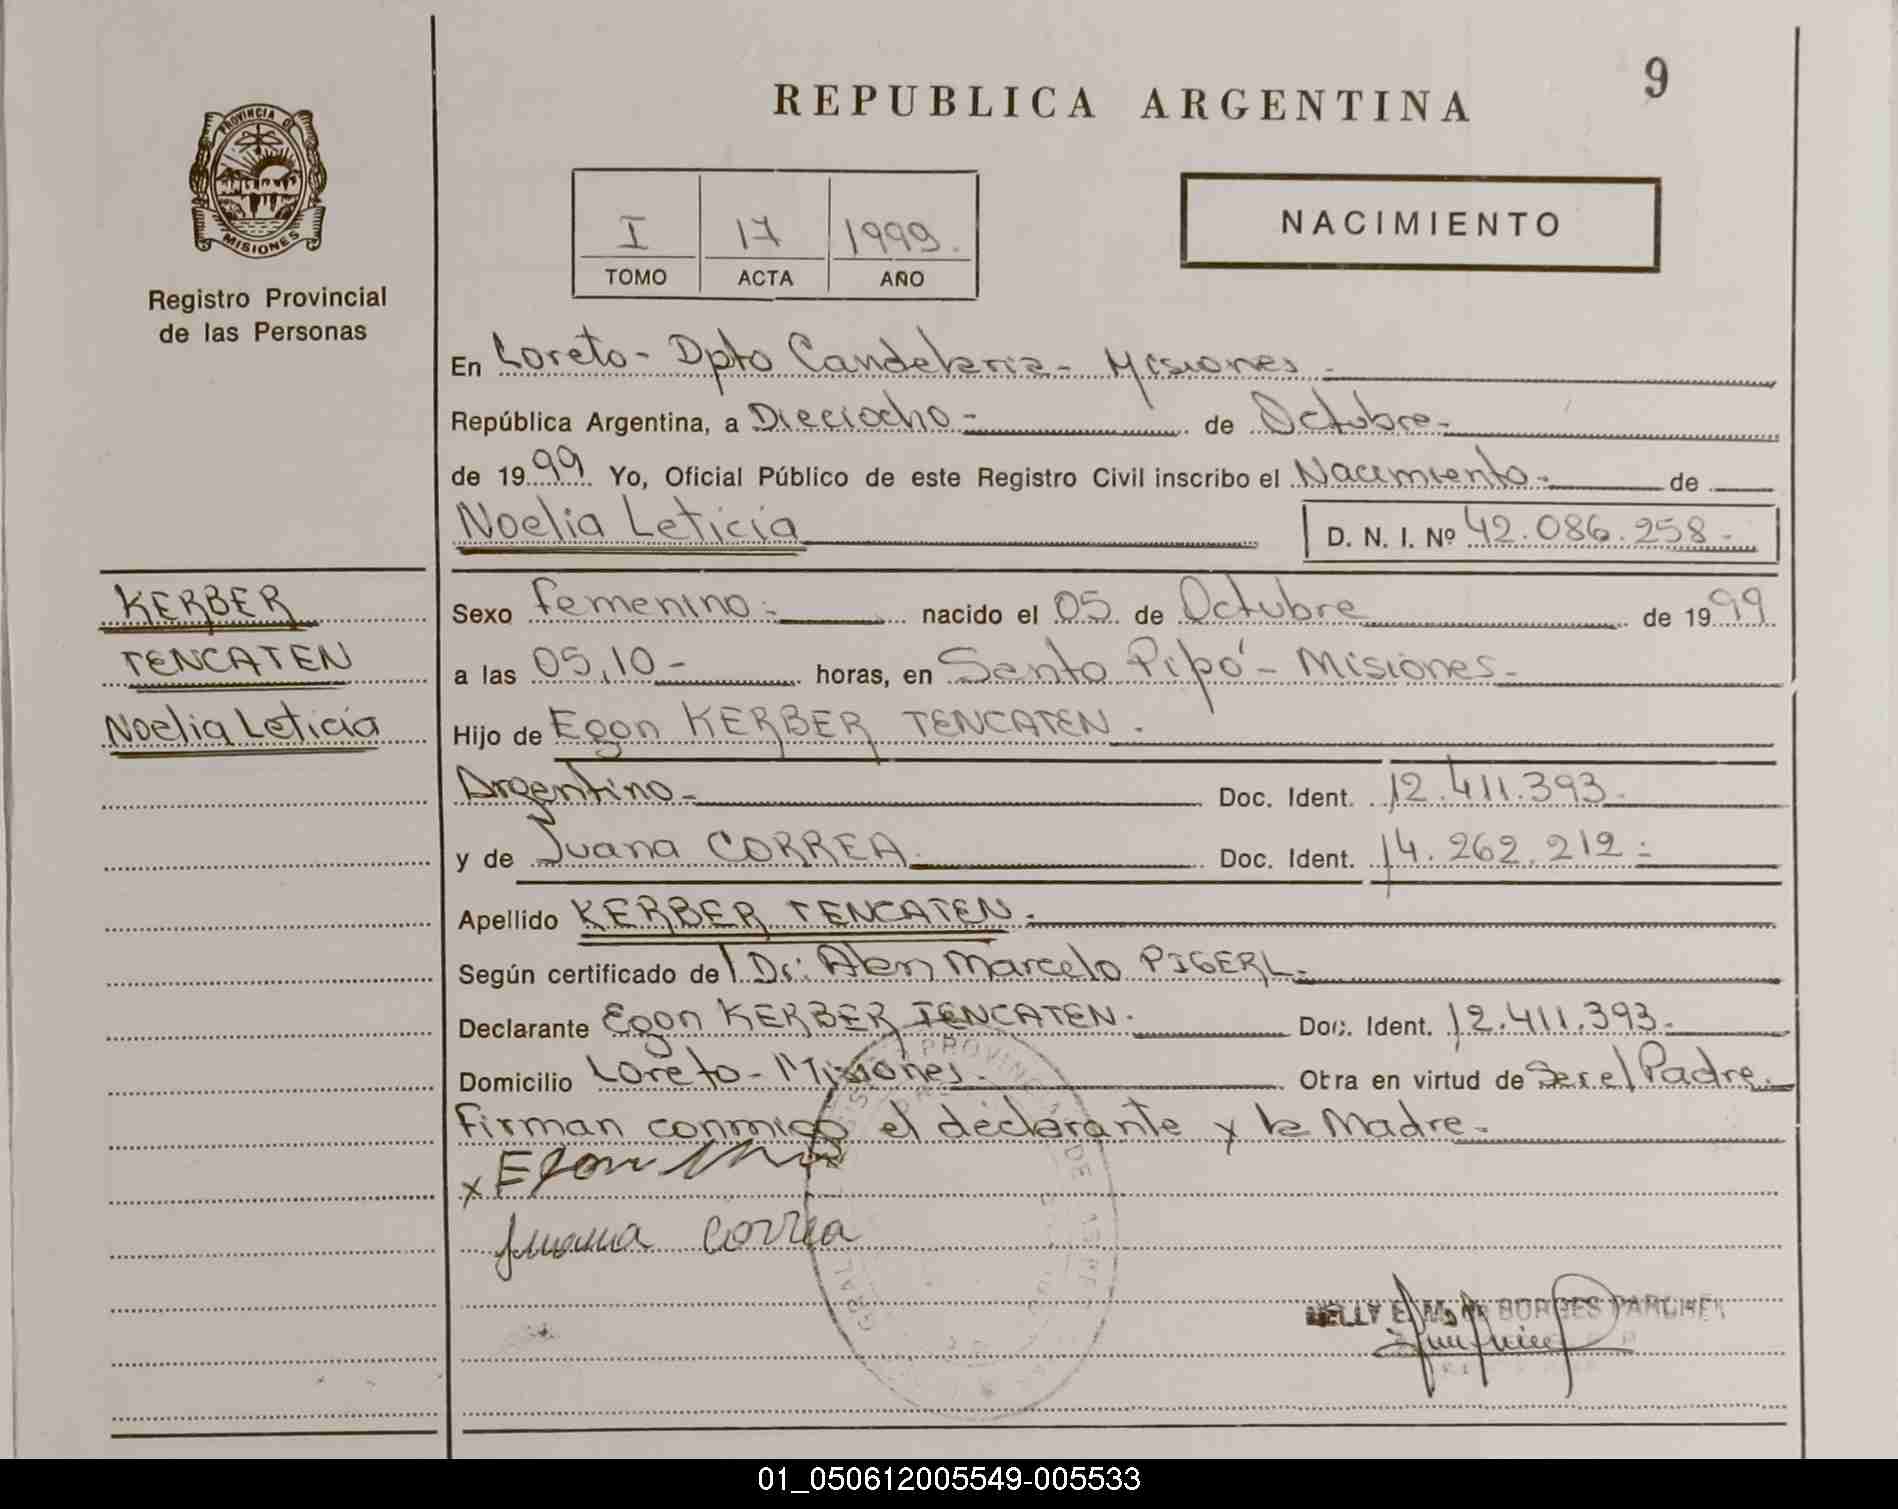 9
REPUBLICA ARGENTINA
PROVINCIA DE
MISIONES
Registro Provincial
de las Personas
I 17 1999.
TOMO ACTA AÑO
NACIMIENTO
En Loreto - Dpto Candelaria - Misiones -
República Argentina, a Dieciocho - de Octubre -
de 1999 Yo, Oficial Público de este Registro Civil inscribo el Nacimiento - de
Noelia Leticia D. N. I. Nº 42.086.258 -
KERBER
TENCATEN
Noelia Leticia
Sexo femenino - nacido el 05 de Octubre de 1999
a las 05,10 - horas, en Santo Pipó - Misiones -
Hijo de Egon KERBER TENCATEN -
Argentino - Doc. Ident. 12.411.393 -
y de Juana CORREA Doc. Ident. 14.262.212 -
Apellido KERBER TENCATEN -
Según certificado del Dr: Alan Marcelo PIGERL -
Declarante Egon KERBER TENCATEN - Doc. Ident. 12.411.393 -
Domicilio Loreto - Misiones - Otra en virtud de Ser el Padre -
firman conmigo el declarante y la Madre -
x Egon
Juana Correa
NELLY E. M. BORGES
01_050612005549-005533